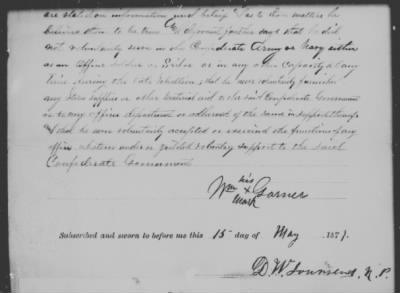 are stated on information and belief & as to those matters he
believes them to be true. & deponent further says that he did
not voluntarily serve in the Confederate Army or Navy either
as an officer soldier or Sailor or in any other capacity at any
time during the late rebellion; that he never voluntarily furnished
any stores supplies or other material aid to the said Confederate Government
or to any officer department or adherent of the same in support thereof
& that he never voluntarily accepted or exercised the functions of any
office whatever under or yielded voluntary support to the said
Confederate Government
his
Wm x Garner
mark
Subscribed and sworn to before me this 15 day of May 1871.
D. W. Townsend, N. P.